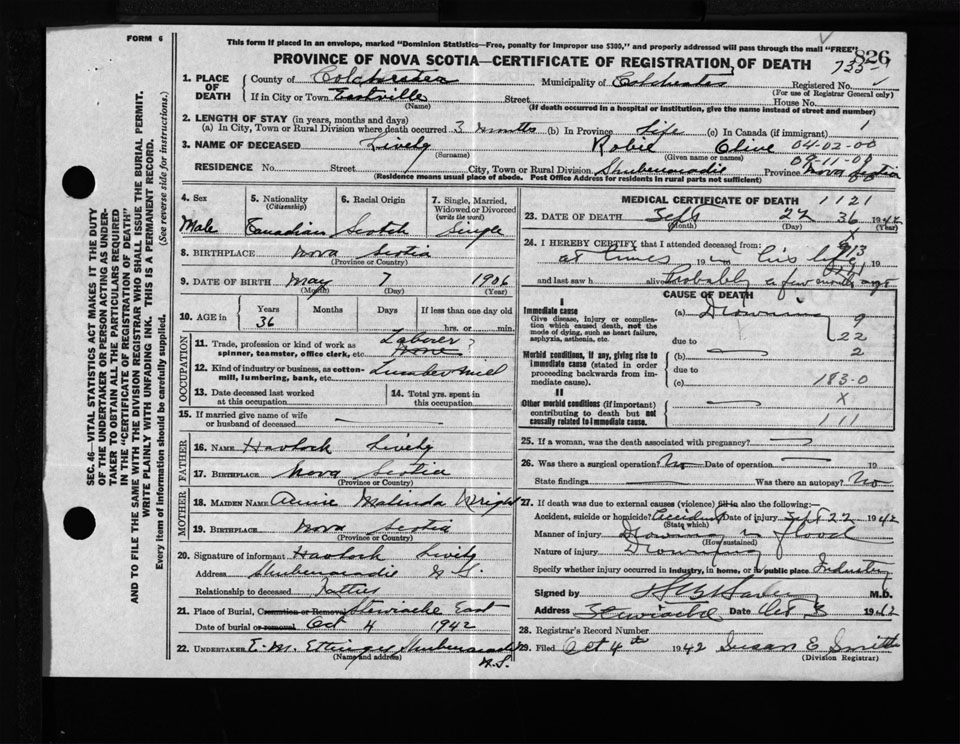 FORM 6
This form if placed in an envelope, marked "Dominion Statistics—Free, penalty for improper use $300," and properly addressed will pass through the mail "FREE"
826
PROVINCE OF NOVA SCOTIA—CERTIFICATE OF REGISTRATION OF DEATH
1. PLACE OF DEATH
County of Colchester Municipality of Colchester Registered No.
(For use of Registrar General only)
If in City or Town Eastville Street House No.
(Name) (If death occurred in a hospital or institution, give the name instead of street and number)
2. LENGTH OF STAY (in years, months and days)
(a) In City, Town or Rural Division where death occurred 3 months (b) In Province Life (c) In Canada (if immigrant) 1
3. NAME OF DECEASED Lively Robie Olive 04-02-00
(Surname) (Given name or names)
RESIDENCE No. Street City, Town or Rural Division Shubenacadie Province Nova Scotia
(Residence means usual place of abode. Post Office Address for residents in rural parts not sufficient)
4. Sex Male
5. Nationality (Citizenship) Canadian
6. Racial Origin Scotch
7. Single, Married, Widowed or Divorced (write the word) Single
8. BIRTHPLACE Nova Scotia
(Province or Country)
9. DATE OF BIRTH May 7 1906
(Month) (Day) (Year)
10. AGE in Years Months Days If less than one day old
36 hrs. or min.
OCCUPATION
11. Trade, profession or kind of work as spinner, teamster, office clerk, etc. Laborer
12. Kind of industry or business, as cotton-mill, lumbering, bank, etc. Lumber mill
13. Date deceased last worked at this occupation
14. Total yrs. spent in this occupation
15. If married give name of wife or husband of deceased
FATHER
16. NAME Havlock Lively
17. BIRTHPLACE Nova Scotia
(Province or Country)
MOTHER
18. MAIDEN NAME Annie Malinda Wright
19. BIRTHPLACE Nova Scotia
(Province or Country)
20. Signature of informant Havlock Lively
Address Shubenacadie N.S.
Relationship to deceased Father
21. Place of Burial, Cremation or Removal Stewiacke East
Date of burial or removal Oct 4 1942
22. UNDERTAKER E. M. Ettinger Shubenacadie
(Name and address) N.S.
MEDICAL CERTIFICATE OF DEATH 1121
23. DATE OF DEATH Sept 22 36 1942
(Month) (Day) (Year)
24. I HEREBY CERTIFY that I attended deceased from:
at times in his life 19
and last saw h alive Probably a few months ago
CAUSE OF DEATH
I
Immediate cause
Give disease, injury or complication which caused death, not the mode of dying, such as heart failure, asphyxia, asthenia, etc.
(a) Drowning 9
due to 22
Morbid conditions, if any, giving rise to immediate cause (stated in order proceeding backwards from immediate cause).
(b) 2
due to
(c) 183-0
II
Other morbid conditions (if important) contributing to death but not causally related to immediate cause.
X
111
25. If a woman, was the death associated with pregnancy?
26. Was there a surgical operation? No Date of operation 19
State findings Was there an autopsy? No
27. If death was due to external causes (violence) fill in also the following:
Accident, suicide or homicide? Accident Date of injury Sept 22 1942
(State which)
Manner of injury Drowning in flood
(How sustained)
Nature of injury Drowning
Specify whether injury occurred in industry, in home, or in public place Industry
Signed by M.D.
Address Stewiacke Date Oct 3 1942
28. Registrar's Record Number
29. Filed Oct 4th 1942 Susan E Smith
(Division Registrar)
SEC. 46—VITAL STATISTICS ACT MAKES IT THE DUTY
OF THE UNDERTAKER OR PERSON ACTING AS UNDER-
TAKER TO OBTAIN ALL THE PARTICULARS REQUIRED
IN THE "CERTIFICATE OF REGISTRATION OF DEATH"
AND TO FILE THE SAME WITH THE DIVISION REGISTRAR WHO SHALL ISSUE THE BURIAL PERMIT.
WRITE PLAINLY WITH UNFADING INK. THIS IS A PERMANENT RECORD.
Every item of information should be carefully supplied. (See reverse side for instructions.)